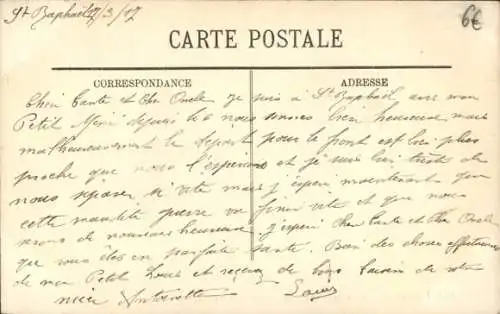 St Raphaël 7/3/17
6€
CARTE POSTALE
CORRESPONDANCE
ADRESSE
Cher Tante et Cher Oncle je suis à St Raphaël avec mon
Petit depuis le 6 nous sommes bien heureuse mais
malheureusement le depart pour le front est bien plus
proche que nous l'esperions et je suis bien triste de
nous separer si vite mais j'espere maintenant que
cette maudite guerre va finir vite et que nous
serons de nouveau heureuse. j'espère Cher Tante et Cher Oncle
que vous êtes en parfaite santé. Bien des choses affectueuses
de mon Petit Loué et recevez de bons baisers de votre
nièce Antoinette